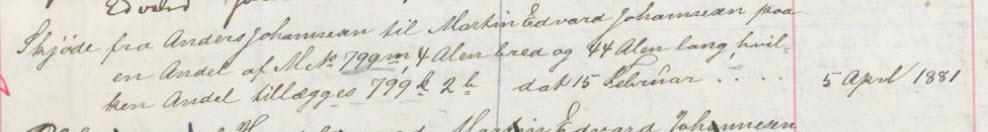 Edvard
Skjøde fra Anders Johannesen til Martin Edvard Johannesen paa
en Andel af M No 799m, 4 Alen bred og 44 Alen lang, hvil-
ken Andel tillægges 799k 2b dat 15 Februar . . . . 5 April 1881
Martin Edvard Johannesen